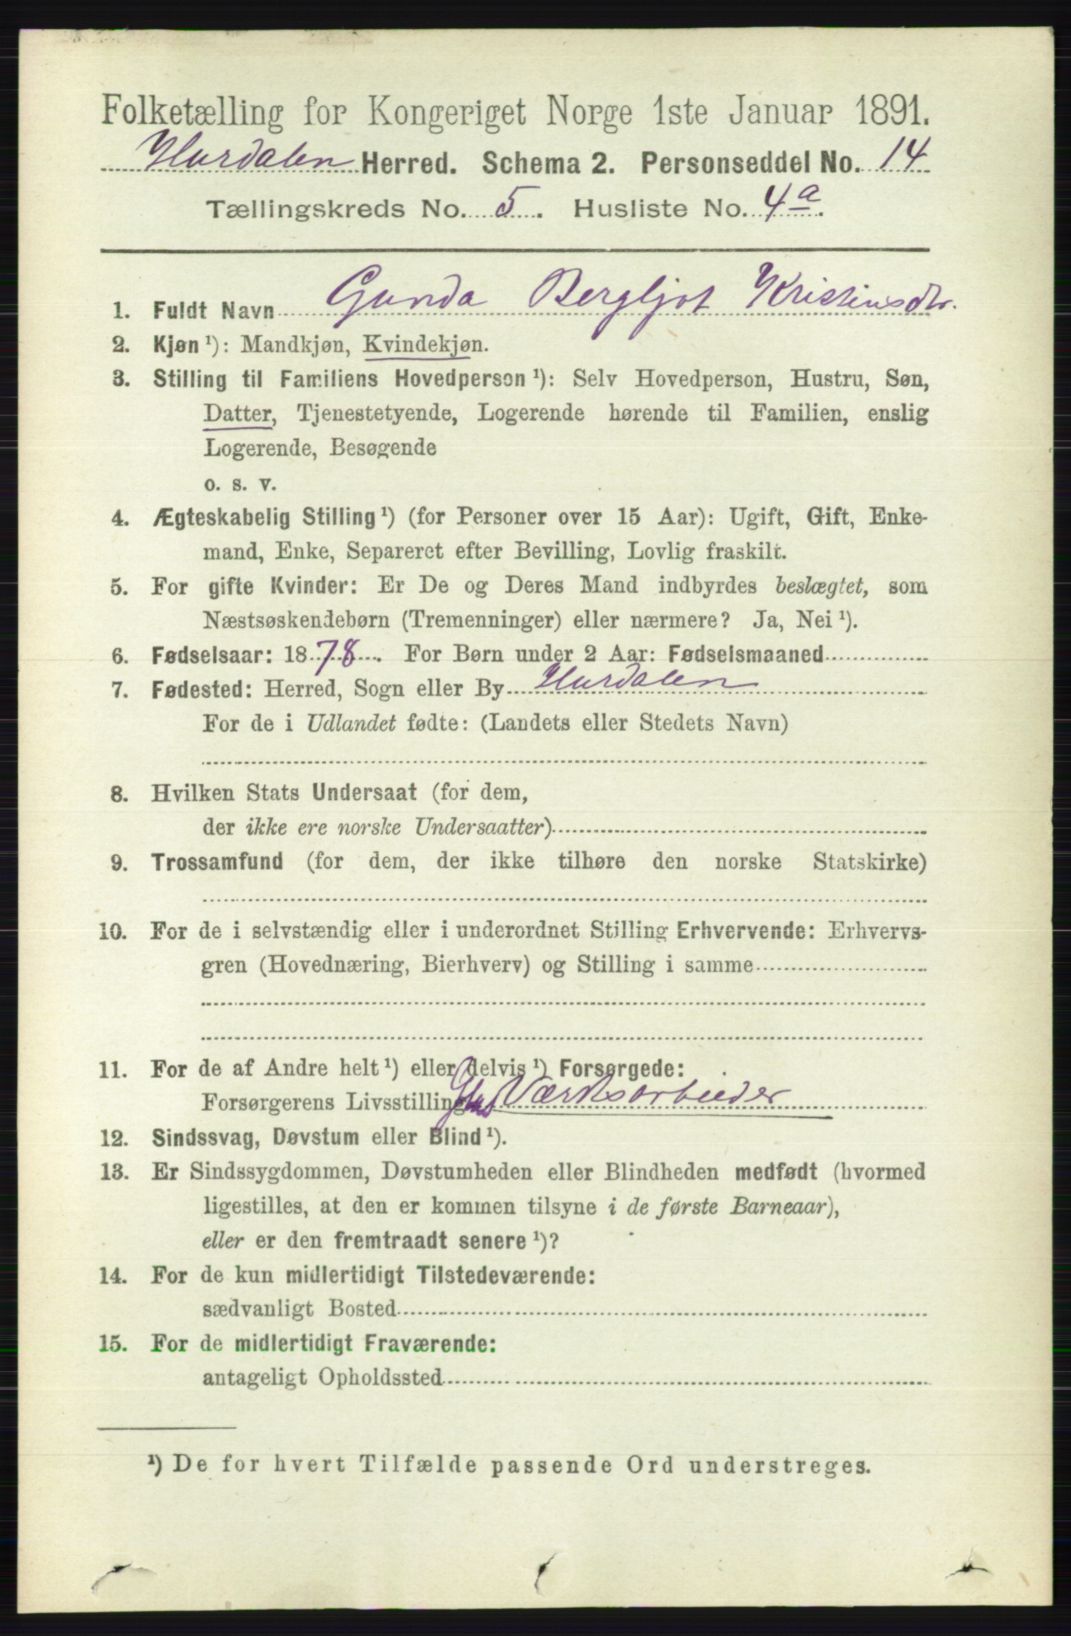 Folketælling for Kongeriget Norge 1ste Januar 1891.
Hurdalen Herred. Schema 2. Personseddel No. 14
Tællingskreds No. 5. Husliste No. 4a.
1. Fuldt Navn Gunda Bergljot Kristinsdtr.
2. Kjøn¹): Mandkjøn, Kvindekjøn.
3. Stilling til Familiens Hovedperson¹): Selv Hovedperson, Hustru, Søn,
Datter, Tjenestetyende, Logerende hørende til Familien, enslig
Logerende, Besøgende
o. s. v.
4. Ægteskabelig Stilling¹) (for Personer over 15 Aar): Ugift, Gift, Enke-
mand, Enke, Separeret efter Bevilling, Lovlig fraskilt.
5. For gifte Kvinder: Er De og Deres Mand indbyrdes beslægtet, som
Næstsøskendebørn (Tremenninger) eller nærmere? Ja, Nei¹).
6. Fødselsaar: 1878. For Børn under 2 Aar: Fødselsmaaned
7. Fødested: Herred, Sogn eller By Hurdalen
For de i Udlandet fødte: (Landets eller Stedets Navn)
8. Hvilken Stats Undersaat (for dem,
der ikke ere norske Undersaatter)
9. Trossamfund (for dem, der ikke tilhøre den norske Statskirke)
10. For de i selvstændig eller i underordnet Stilling Erhvervende: Erhvervs-
gren (Hovednæring, Bierhverv) og Stilling i samme
11. For de af Andre helt¹) eller delvis¹) Forsørgede:
Forsørgerens Livsstilling Glas Værksarbeider
12. Sindssvag, Døvstum eller Blind¹).
13. Er Sindssygdommen, Døvstumheden eller Blindheden medfødt (hvormed
ligestilles, at den er kommen tilsyne i de første Barneaar),
eller er den fremtraadt senere¹)?
14. For de kun midlertidigt Tilstedeværende:
sædvanligt Bosted
15. For de midlertidigt Fraværende:
antageligt Opholdssted
¹) De for hvert Tilfælde passende Ord understreges.